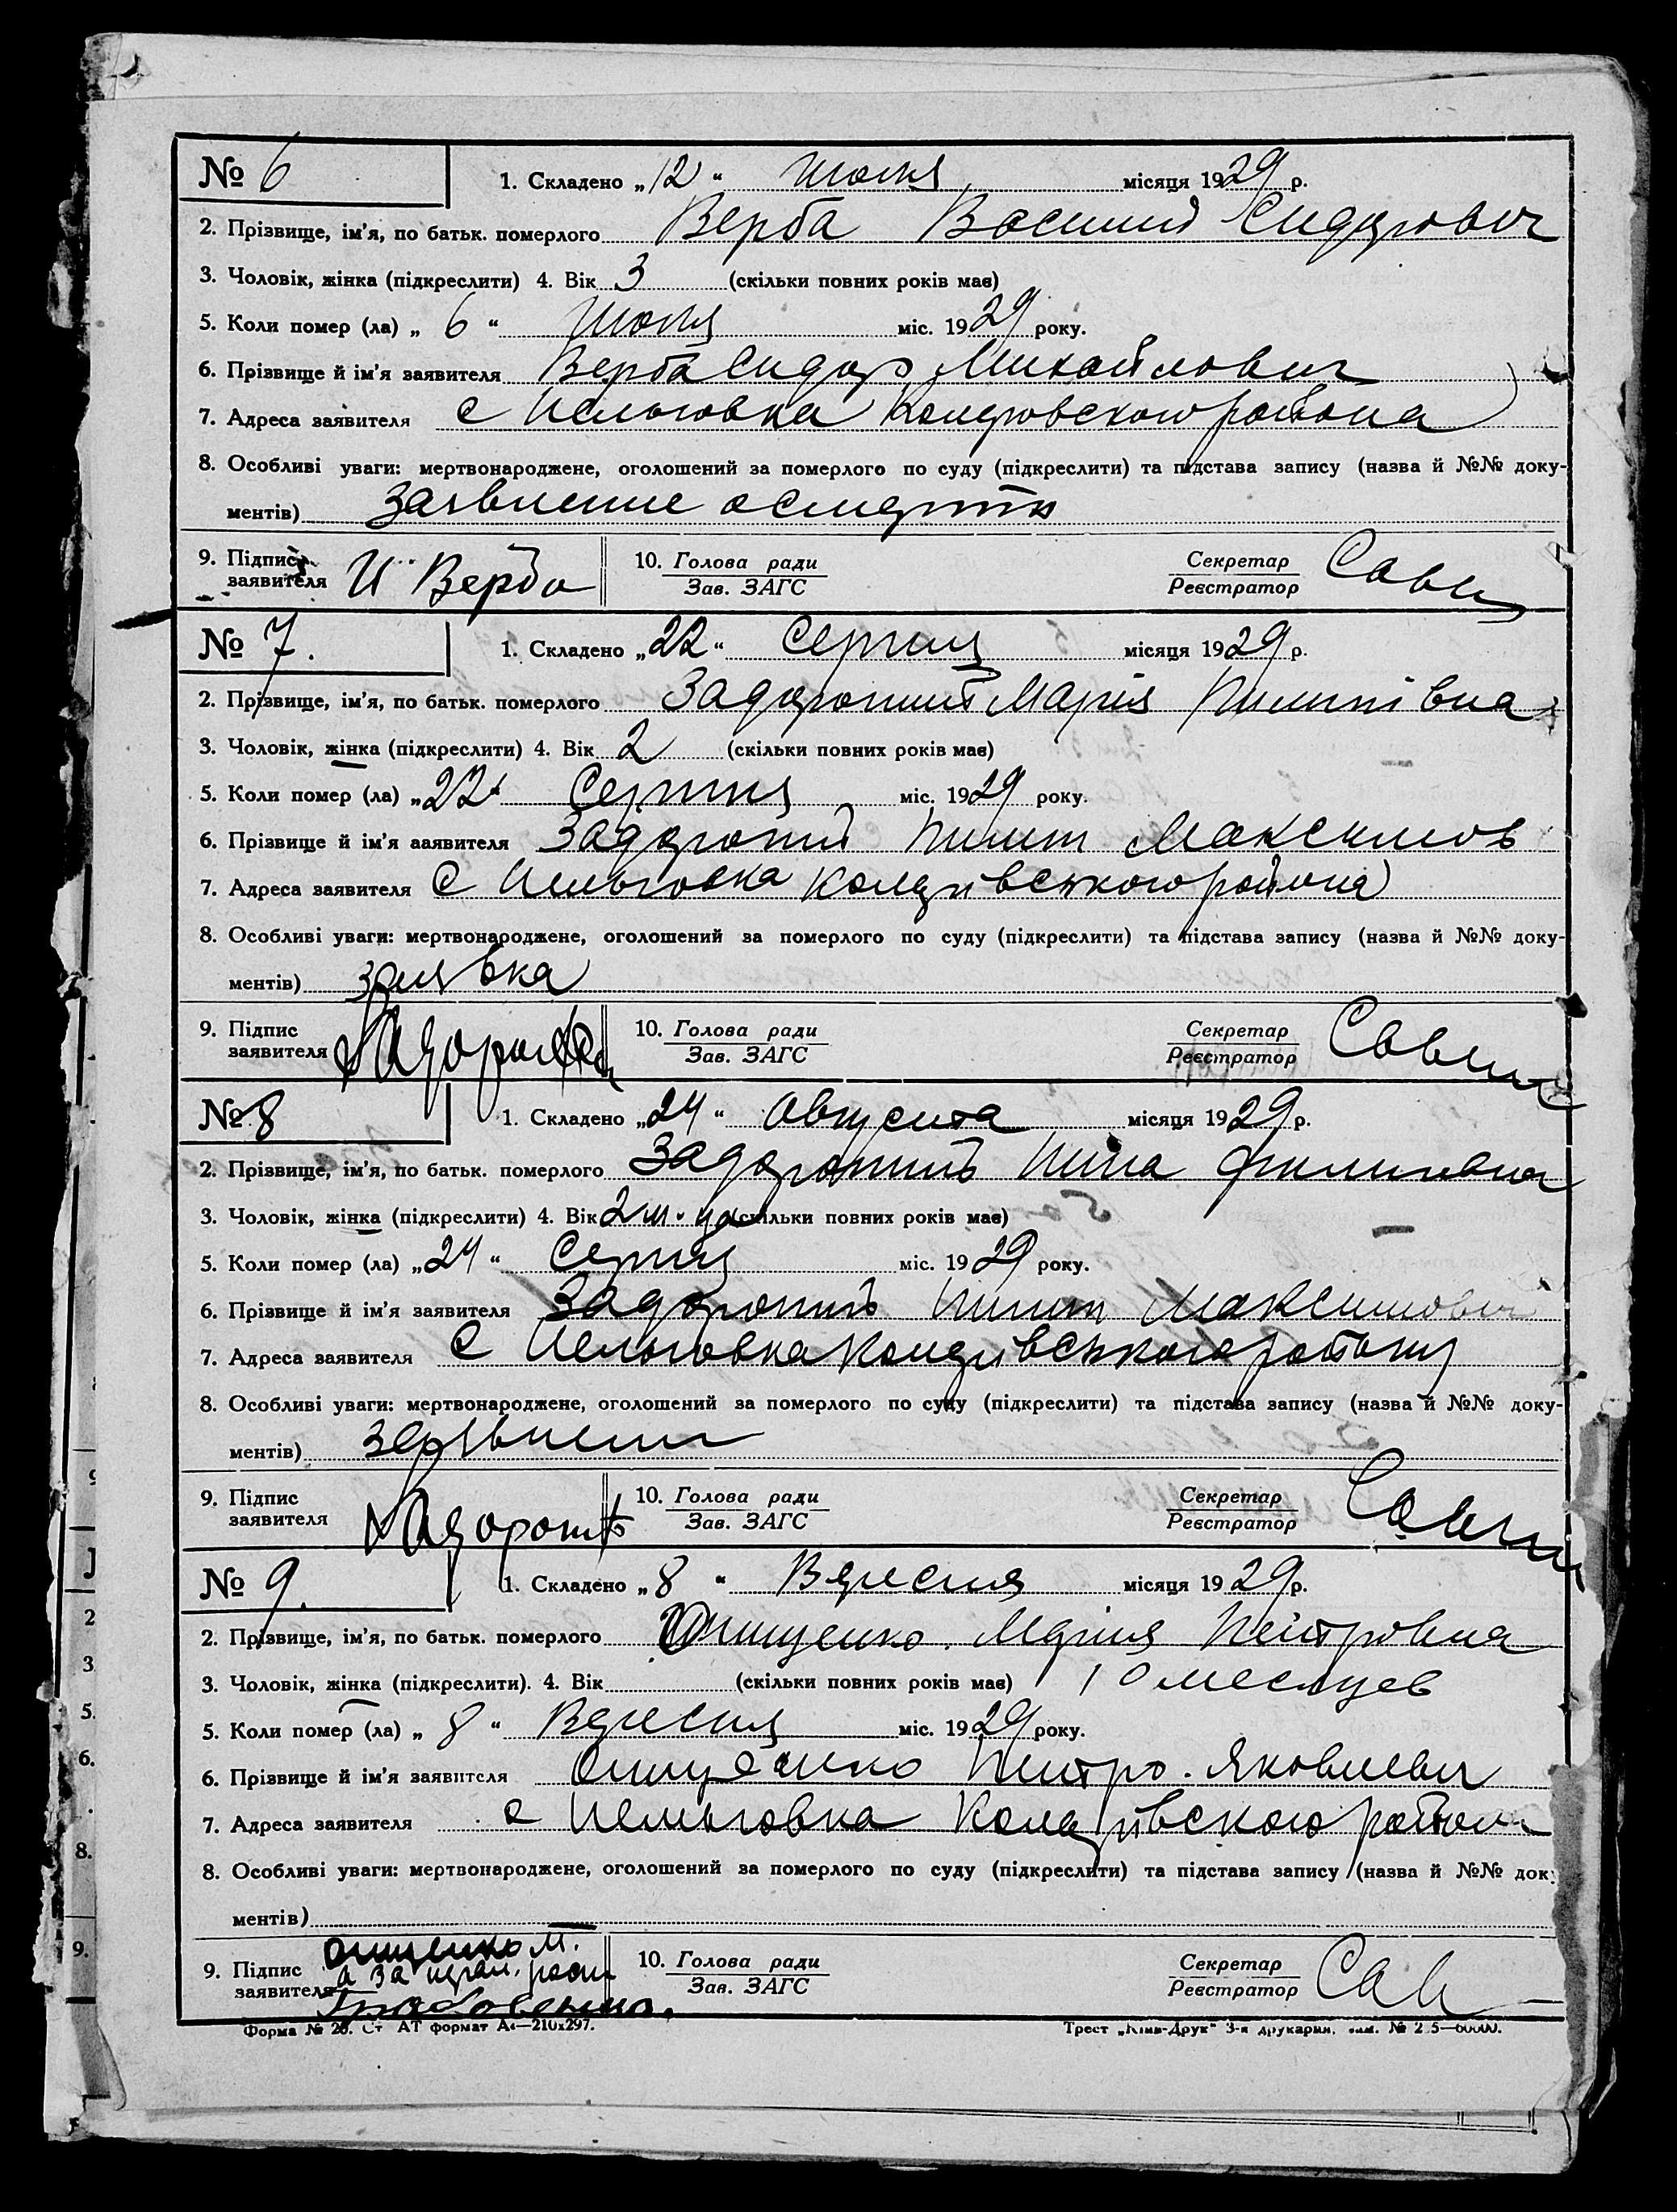 № 6
1. Складено „12“ июля місяця 1929 р.
2. Прізвище, ім'я, по батьк. померлого Верба Василий Сидорович
3. Чоловік, жінка (підкреслити) 4. Вік 3 (скільки повних років має)
5. Коли помер (ла) „ 6 “ июля міс. 1929 року.
6. Прізвище й ім'я заявителя Верба Сидор Михайлович
7. Адреса заявителя с района
8. Особливі уваги: мертвонароджене, оголошений за померлого по суду (підкреслити) та підстава запису (назва й №№ доку-
ментів) Заявление о смерти
9. Підпис заявителя Верба
10. Голова ради
Зав. ЗАГС
Секретар
Реєстратор
№ 7.
1. Складено „22“ Серпня місяця 1929 р.
2. Прізвище, ім'я, по батьк. померлого Задорожний Марія Пилипівна
3. Чоловік, жінка (підкреслити) 4. Вік 2 (скільки повних років має)
5. Коли помер (ла) „22“ Серпня міс. 1929 року.
6. Прізвище й ім'я заявителя Задорожний Пилип Максимов
7. Адреса заявителя С района
8. Особливі уваги: мертвонароджене, оголошений за померлого по суду (підкреслити) та підстава запису (назва й №№ доку-
ментів) заявка
9. Підпис
заявителя
10. Голова ради
Зав. ЗАГС
Секретар
Реєстратор
№ 8
1. Складено „24“ Августа місяця 1929 р.
2. Прізвище, ім'я, по батьк. померлого Задорожний Нина Филиповна
3. Чоловік, жінка (підкреслити) 4. Вік 2 м-ца (скільки повних років має)
5. Коли помер (ла) „24“ Серпня міс. 1929 року.
6. Прізвище й ім'я заявителя Задорожний Пилип Максимович
7. Адреса заявителя С району
8. Особливі уваги: мертвонароджене, оголошений за померлого по суду (підкреслити) та підстава запису (назва й №№ доку-
ментів) заявление
9. Підпис
заявителя
10. Голова ради
Зав. ЗАГС
Секретар
Реєстратор
№ 9.
1. Складено „8“ Вересня місяця 1929 р.
2. Прізвище, ім'я, по батьк. померлого Онищенко Мария Петровна
3. Чоловік, жінка (підкреслити). 4. Вік (скільки повних років має) 10 месяцев
5. Коли помер (ла) „ 8 “ Вересня міс. 1929 року.
6. Прізвище й ім'я заявителя Онищенко Петро Яковлевич
7. Адреса заявителя с района
8. Особливі уваги: мертвонароджене, оголошений за померлого по суду (підкреслити) та підстава запису (назва й №№ доку
ментів)
Онищенко
9. Підпис а за
заявителя
10. Голова ради
Зав. ЗАГС
Секретар
Реєстратор
Форма № 20. Ст АТ формат А4—210х297.
Трест „Київ-Друк“ 3-я друкарня,